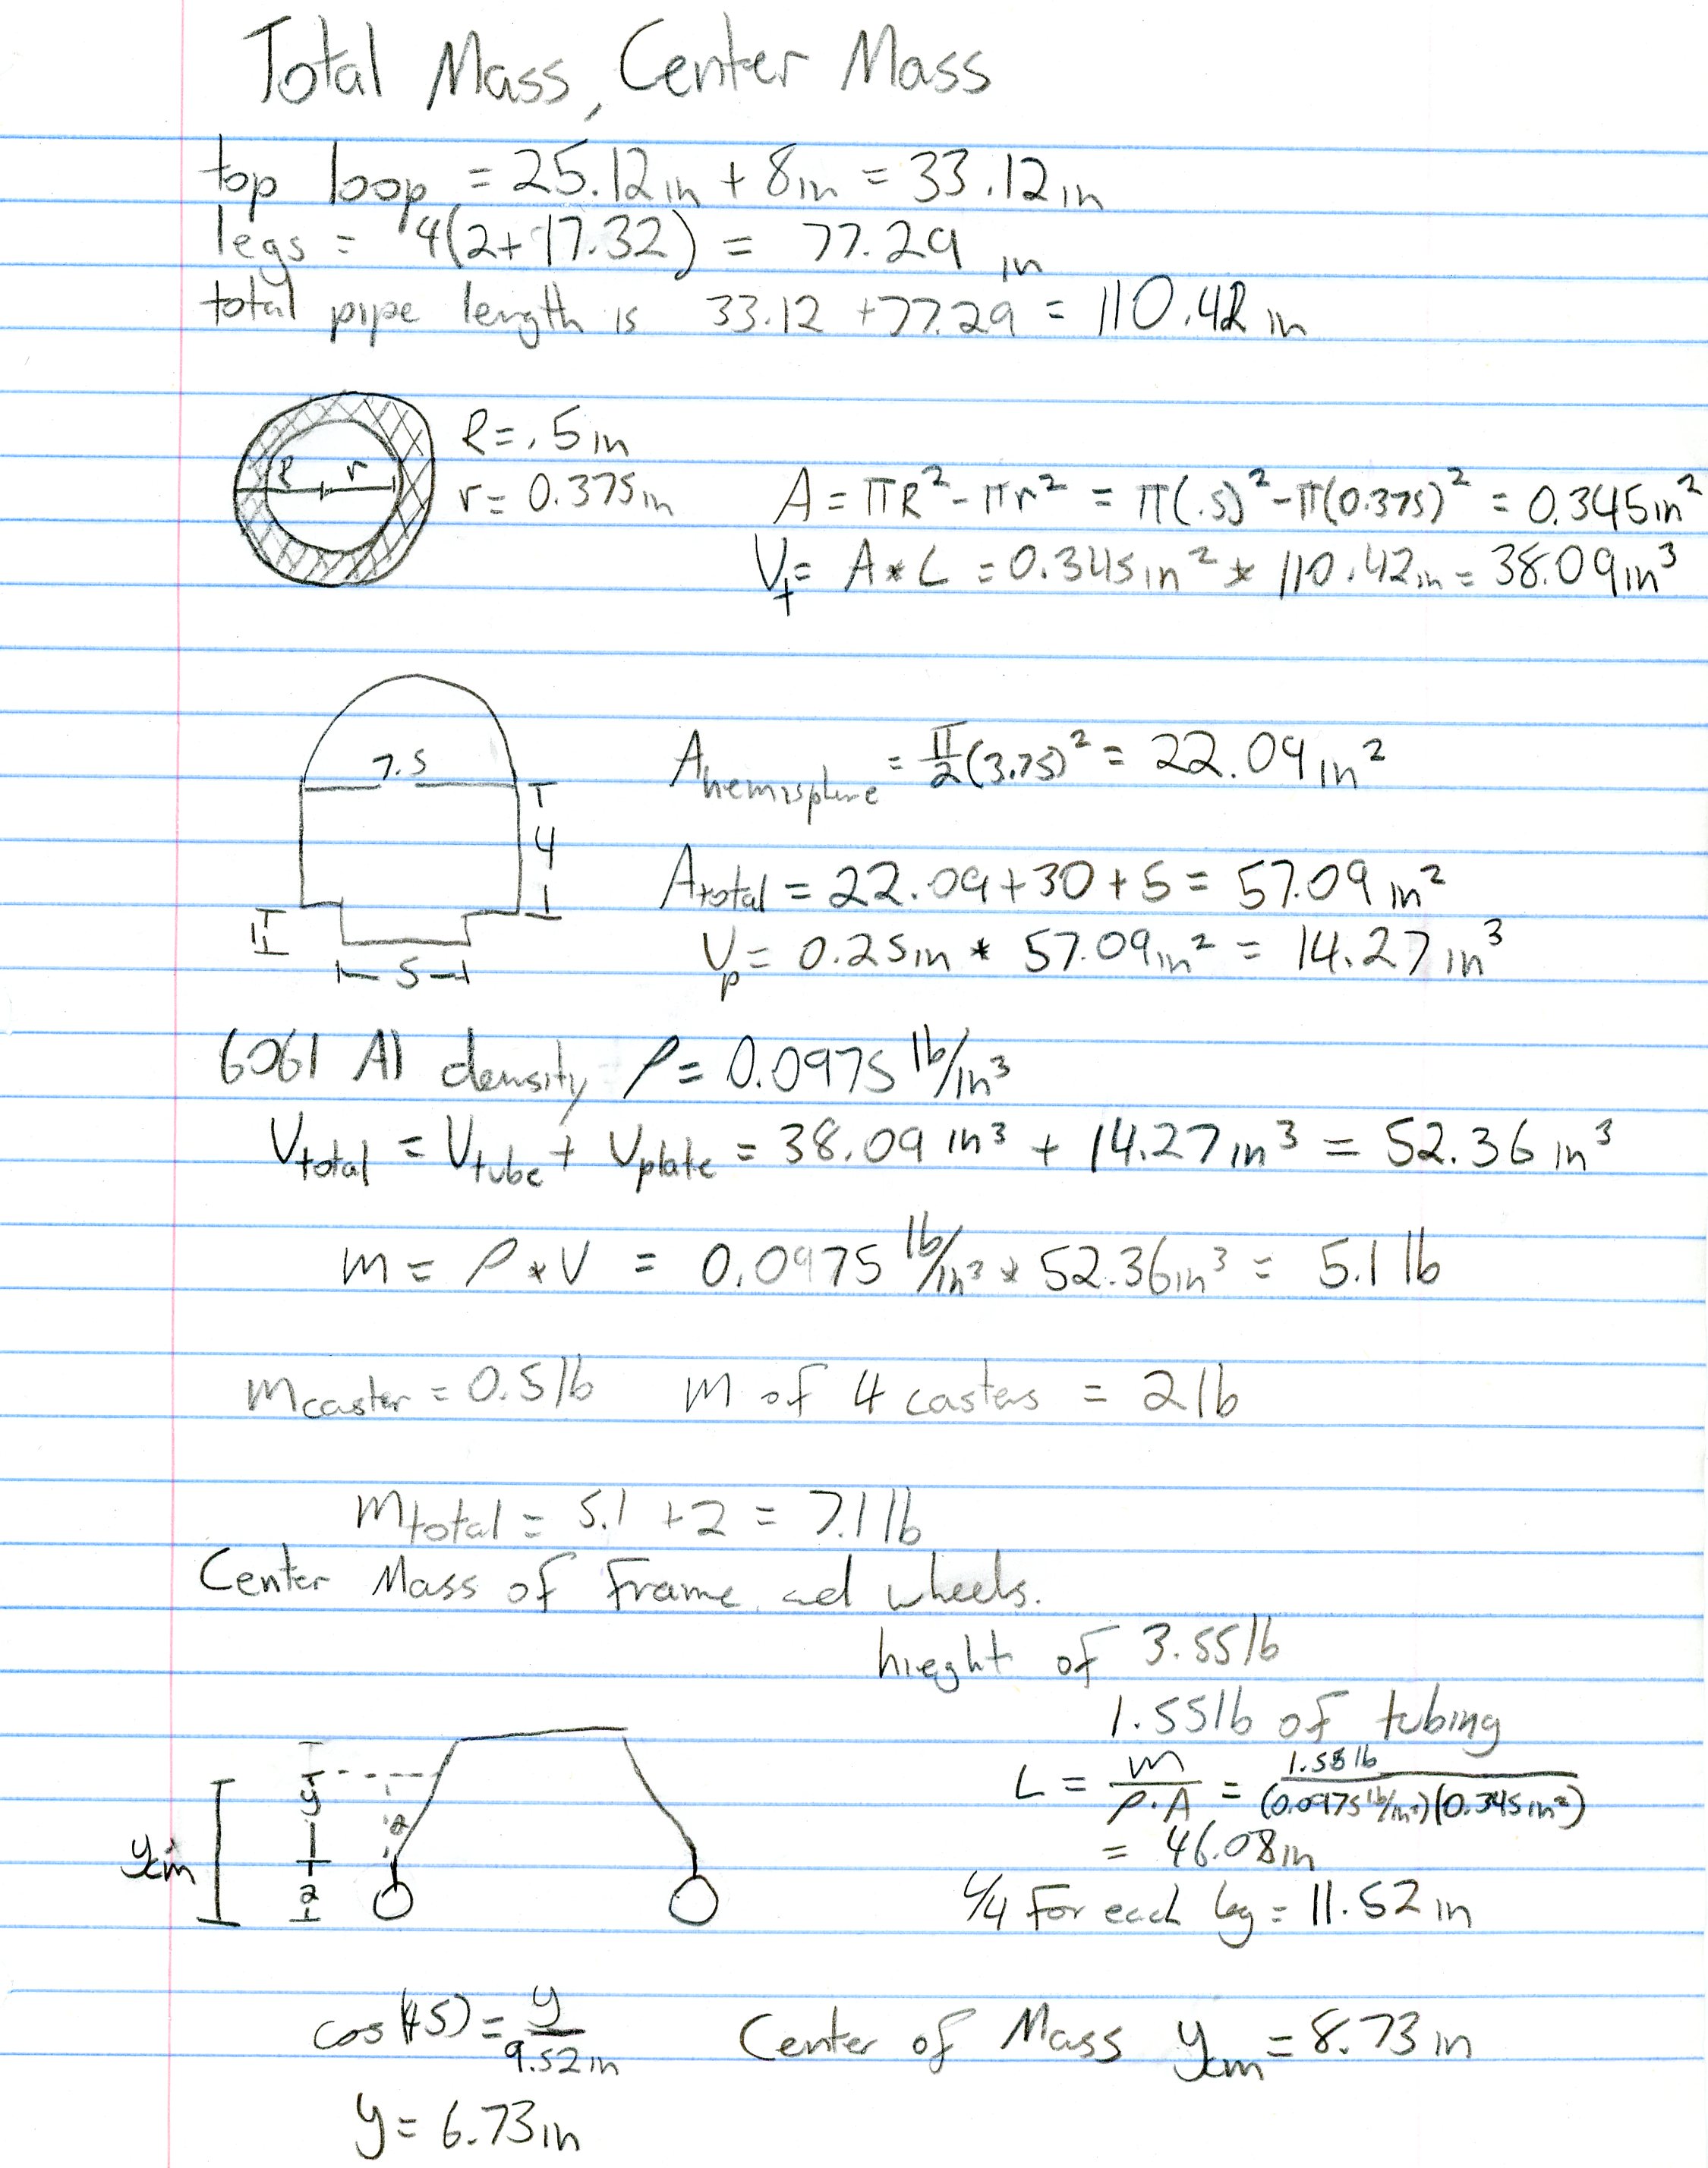 Total Mass, Center Mass
top loop = 25.12in + 8in = 33.12in
legs = 4(2+17.32) = 77.29 in
total pipe length is 33.12 +77.29 = 110.42 in
R=.5in
R r
r= 0.375in
A = πR²-πr² = π(.5)²-π(0.375)² = 0.345in²
Vt= A*L = 0.345in² * 110.42in = 38.09in³
7.5
Ahemisphere = π/2(3.75)² = 22.09in²
4
Atotal = 22.09+30+5 = 57.09 in²
1
Vp= 0.25in * 57.09in² = 14.27in³
5
6061 Al density ρ= 0.0975 lb/in³
Vtotal = Vtube + Vplate = 38.09 in³ + 14.27in³ = 52.36 in³
m = ρ*V = 0.0975 lb/in³ * 52.36in³ = 5.1 lb
mcaster = 0.5lb m of 4 casters = 2lb
mtotal = 5.1 +2 = 7.1lb
Center Mass of Frame and wheels.
hieght of 3.55lb
1.55lb of tubing
L = m/ρ·A = 1.55 lb/(0.0975 lb/in³)(0.345in²)
y
= 46.08in
ycm
2
1/4 For each leg = 11.52 in
cos(45)= y/9.52in Center of Mass ycm = 8.73in
y= 6.73in